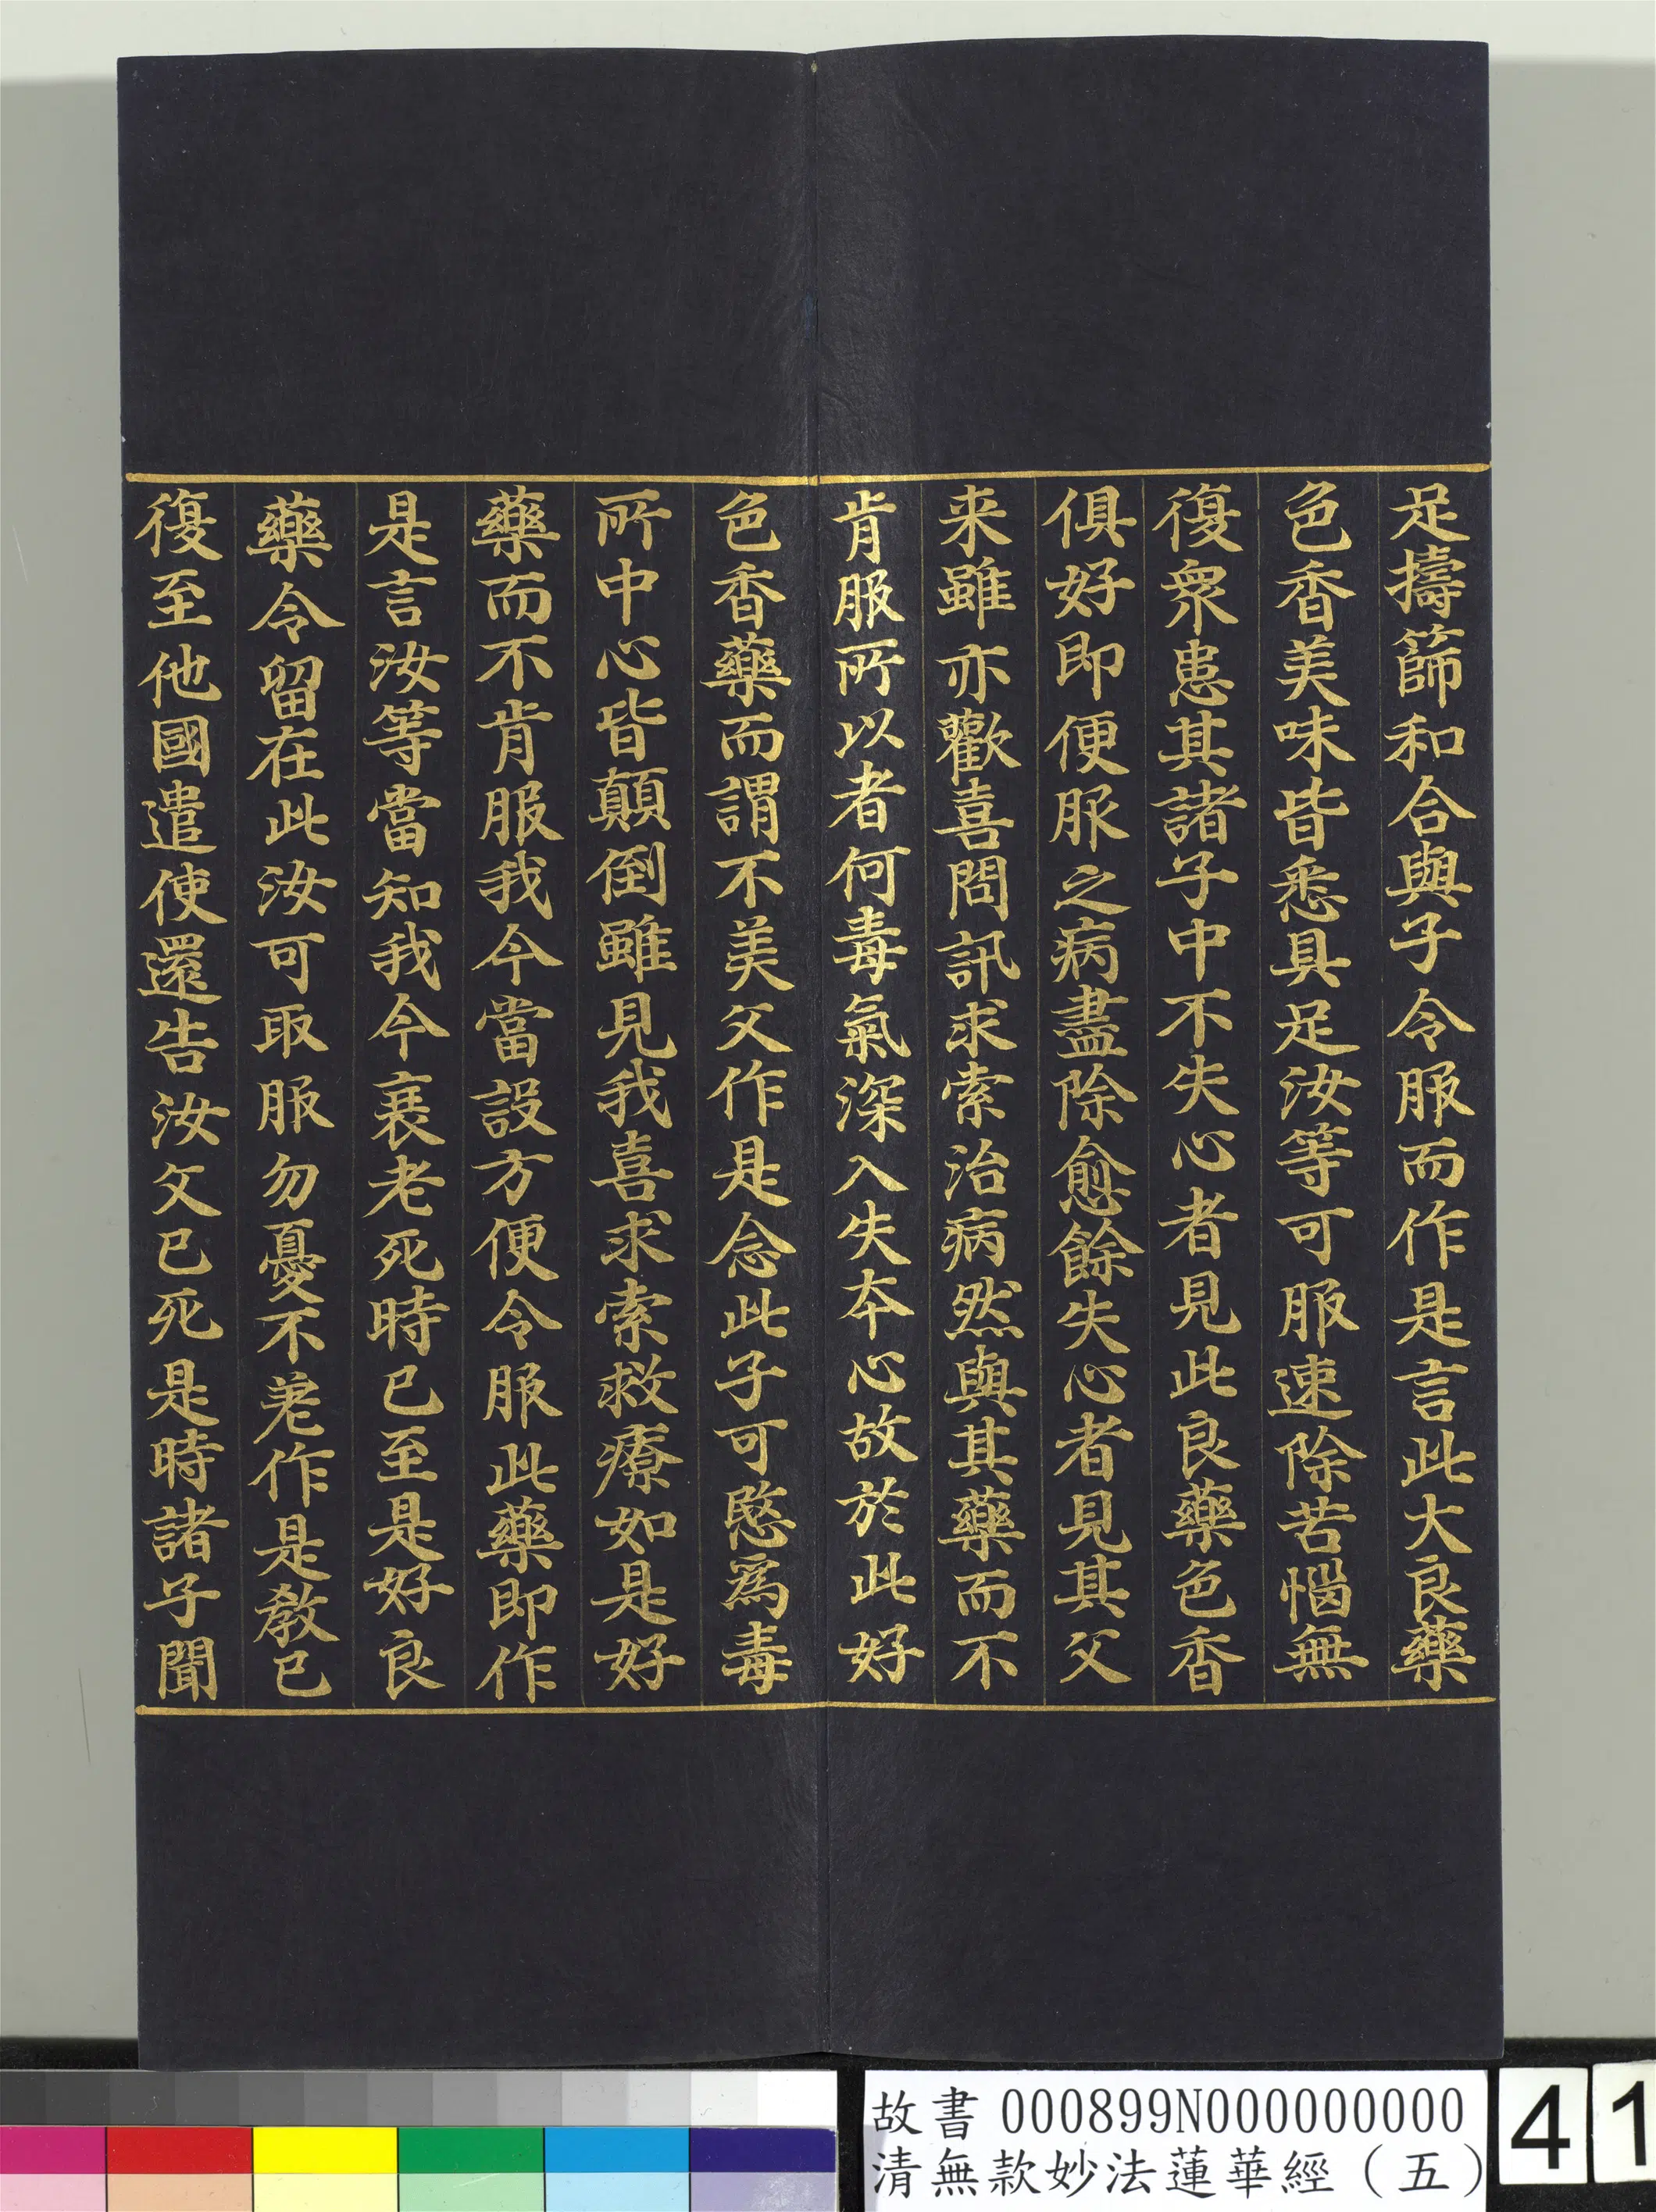 足擣篩和合與子令服而作是言此大良藥
色香美味皆悉具足汝等可服速除苦惱無
復衆患其諸子中不失心者見此良藥色香
俱好即便服之病盡除愈餘失心者見其父
来雖亦歡喜問訊求索治病然與其藥而不
肯服所以者何毒氣深入失本心故於此好
色香藥而謂不美父作是念此子可愍爲毒
所中心皆顛倒雖見我喜求索救療如是好
藥而不肯服我今當設方便令服此藥即作
是言汝等當知我今衰老死時已至是好良
藥今留在此汝可取服勿憂不差作是教已
復至他國遣使還告汝父已死是時諸子聞
故書 000899N000000000
清無款妙法蓮華經（五）
41